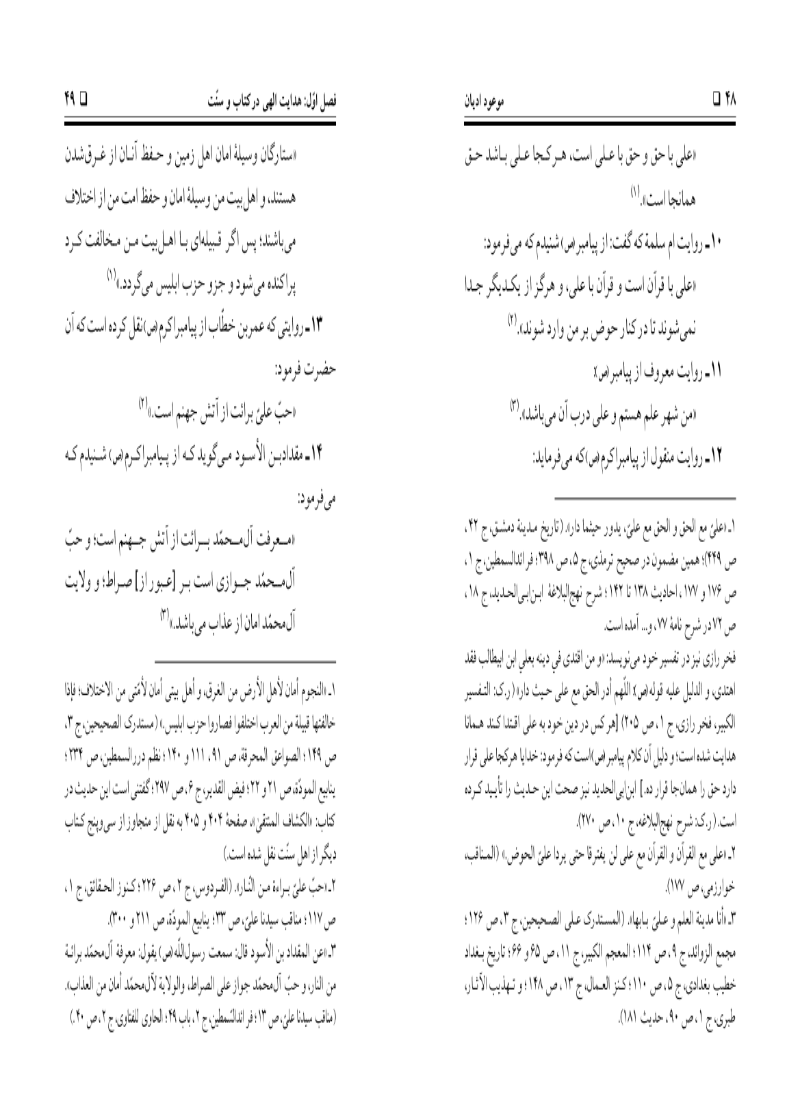 ۴۸ □ موعود ادیان
«علی با حق و حق با علی است، هر کجا علی باشد حق
همانجا است».(۱)
۱۰ـ روایت ام سلمة که گفت: از پیامبر(ص) شنیدم که می‌فرمود:
«علی با قرآن است و قرآن با علی، و هرگز از یکدیگر جدا
نمی‌شوند تا در کنار حوض بر من وارد شوند».(۲)
۱۱ـ روایت معروف از پیامبر(ص):
«من شهر علم هستم و علی درب آن می‌باشد».(۳)
۱۲ـ روایت منقول از پیامبراکرم(ص) که می‌فرماید:
۱ـ «علیّ مع الحق و الحق مع علیّ، یدور حیثما دار». (تاریخ مدینة دمشق، ج ۴۲،
ص ۴۴۹)؛ همین مضمون در صحیح ترمذی، ج ۵، ص ۳۹۸؛ فرائدالسمطین، ج ۱،
ص ۱۷۶ و ۱۷۷، احادیث ۱۳۸ تا ۱۴۲؛ شرح نهج‌البلاغة ابن‌ابی‌الحدید، ج ۱۸،
ص ۷۲ در شرح نامة ۷۷، و... آمده است.
فخر رازی نیز در تفسیر خود می‌نویسد: «و من اقتدی في دینه بعلي ابن ابیطالب فقد
اهتدی، و الدلیل علیه قوله(ص): اللّهم أدر الحق مع علی حیث دار» (ر.ک: التفسیر
الکبیر، فخر رازی، ج ۱، ص ۲۰۵) [هر کس در دین خود به علی اقتدا کند همانا
هدایت شده است؛ و دلیل آن کلام پیامبر(ص) است که فرمود: خدایا هرکجا علی قرار
دارد حق را همان‌جا قرار ده.] ابن‌ابی‌الحدید نیز صحت این حدیث را تأیید کرده
است. (ر.ک: شرح نهج‌البلاغه، ج ۱۰، ص ۲۷۰).
۲ـ «علی مع القرآن و القرآن مع علی لن یفترقا حتی یردا علیّ الحوض.» (المناقب،
خوارزمی، ص ۱۷۷).
۳ـ «أنا مدینة العلم و علیّ بابها». (المستدرک علی الصحیحین، ج ۳، ص ۱۲۶؛
مجمع الزوائد، ج ۹، ص ۱۱۴؛ المعجم الکبیر، ج ۱۱، ص ۶۵ و ۶۶؛ تاریخ بغداد
خطیب بغدادی، ج ۵، ص ۱۱۰؛ کنز العمال، ج ۱۳، ص ۱۴۸؛ و تهذیب الآثار،
طبری، ج ۱، ص ۹۰، حدیث ۱۸۱).
فصل اوّل: هدایت الهی در کتاب و سنّت □ ۴۹
«ستارگان وسیلهٔ امان اهل زمین و حفظ آنان از غرق‌شدن
هستند، و اهل‌بیت من وسیلهٔ امان و حفظ امت من از اختلاف
می‌باشند؛ پس اگر قبیله‌ای با اهل‌بیت من مخالفت کرد
پراکنده می‌شود و جزو حزب ابلیس می‌گردد.»(۱)
۱۳ـ روایتی که عمربن خطّاب از پیامبراکرم(ص) نقل کرده است که آن
حضرت فرمود:
«حبّ علیّ برائت از آتش جهنم است.»(۲)
۱۴ـ مقدادبن الأسود می‌گوید که از پیامبراکرم(ص) شنیدم که
می‌فرمود:
«معرفت آل‌محمّد برائت از آتش جهنم است؛ و حبّ
آل‌محمّد جوازی است بر [عبور از] صراط؛ و ولایت
آل‌محمّد امان از عذاب می‌باشد.»(۳)
۱ـ «النجوم أمان لأهل الأرض من الغرق، و أهل بیتی أمان لأمّتی من الاختلاف؛ فإذا
خالفتها قبیلة من العرب اختلفوا فصاروا حزب ابلیس.» (مستدرک الصحیحین، ج ۳،
ص ۱۴۹؛ الصواعق المحرقة، ص ۹۱، ۱۱۱ و ۱۴۰؛ نظم دررالسمطین، ص ۲۳۴؛
ینابیع المودّة، ص ۲۱ و ۲۲؛ فیض القدیر، ج ۶، ص ۲۹۷؛ گفتنی است این حدیث در
کتاب: «الکشاف المنتقی»، صفحهٔ ۴۰۴ و ۴۰۵ به نقل از متجاوز از سی‌وپنج کتاب
دیگر از اهل سنّت نقل شده است.)
۲ـ «حبّ علیّ براءة من النّار». (الفردوس، ج ۲، ص ۲۲۶؛ کنوز الحقائق، ج ۱،
ص ۱۱۷؛ مناقب سیدنا علیّ، ص ۳۳؛ ینابیع المودّة، ص ۲۱۱ و ۳۰۰).
۳ـ «عن المقداد بن الأسود قال: سمعت رسول‌اللّه(ص) یقول: معرفة آل‌محمّد برائة
من النار، و حبّ آل‌محمّد جواز علی الصراط، والولایة لآل‌محمّد أمان من العذاب».
(مناقب سیدنا علیّ، ص ۱۳؛ فرائدالسّمطین، ج ۲، باب ۴۹؛ الحاوی للفتاوی، ج ۲، ص ۴۰.)